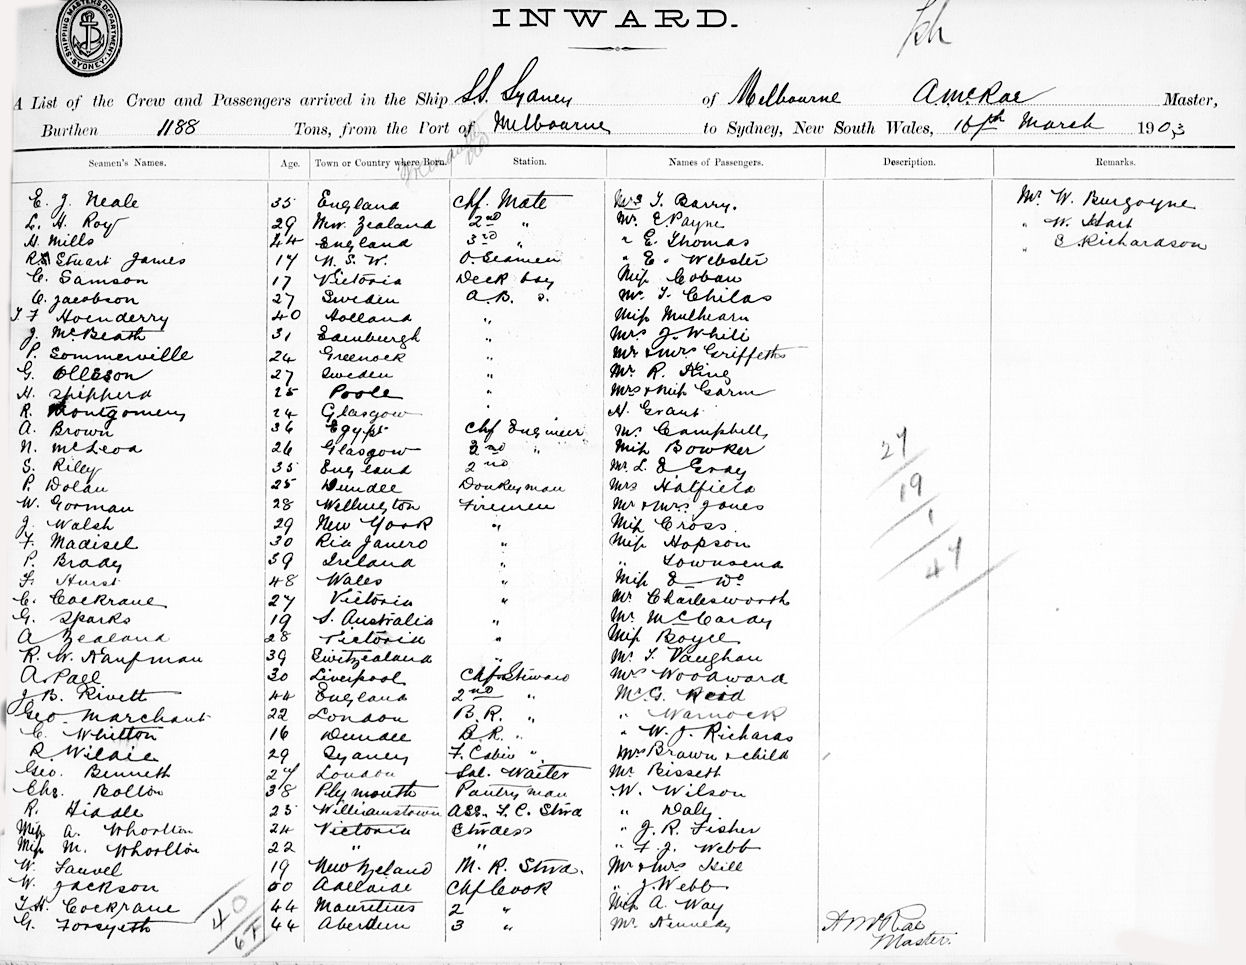 INWARD.
SHIPPING MASTERS DEPARTMENT SYDNEY
A List of the Crew and Passengers arrived in the Ship S.S. Sydney of Melbourne A McRae Master,
Burthen 1188 Tons, from the Port of Melbourne to Sydney, New South Wales, 16th March 1903
Seamen's Names. Age. Town or Country where Born. Station. Names of Passengers. Description. Remarks.
E. J. Neale 35 England Chf. Mate Mrs T. Barry. Mr W. Burgoyne
L. H. Roy 29 New Zealand 2nd " Mr. E. Payne " W. Hart
H. Mills 44 England 3rd " " E. Thomas " C Richardson
Stuart James 17 N. S. W. O. Seamen " E. Webster
C. Samson 17 Victoria Deck boy Miss Coban
C. Jacobson 27 Sweden A. B. s. Mr. T. Childs
T F Hoenderry 40 Holland " Miss Mulhearn
J. McBeath 31 Edinburgh " Mrs J. White
P. Sommerville 24 Greenock " Mr & Mrs Griffeths
G. Olleson 27 Sweden " Mr. R. King
H. Shipperd 25 Poole " Mrs & Miss Garm
R. Montgomery 24 Glasgow " H. Grant
A. Brown 36 Egypt Chf Engineer Mr Campbell
N. McLeod 26 Glasgow 2nd " Miss Bowker
S. Riley 35 England 2nd Mr. L. E Gray
P. Dolan 25 Dundee Donkeyman Mrs Hatfield
W. Gorman 28 Wellington Firemen Mr & Mrs Jones
J. Walsh 29 New York " Miss Cross
F. Madisel 30 Ria Janero " Miss Hopson
P. Brady 39 Ireland " " Townsend
F. Hurst 48 Wales " Miss E Do
C. Cockrane 27 Victoria " Mr Charlesworth
G. Sparks 19 S. Australia " Mr. McCardy
A Zealand 28 Victoria " Miss Boyce
R. W. Kaufman 39 Switzealand " Mr. T. Vaughan
A. Pall 30 Liverpool Chf Steward Mrs Woodward
J. B. Rivett 44 England 2nd " Mr G. Reid
Geo Marchant 22 London B. R. " " Warnock
C. Whitton 16 Dundee B.R. " " W. J. Richards
R. Wildie 29 Sydney F. Cabin " Mrs Brown & child
Geo. Bennett 27 London Sal. Waiter Mr Bissett
Chs. Bolton 38 Plymouth Pantryman W. Wilson
R. Hiddle 25 Williamstown Ass. F. C. Stwd " Daly
Miss A. Whorlton 24 Victoria Stwdess " J. R. Fisher
Miss M. Whorlton 22 " " " F. J. Webb
W. Sauvel 19 New Zeland M. R. Stwd. Mr & Mrs Hill
W. Jackson 50 Adelaide Chf Cook " J. Webb
T. H. Cockrane 44 Mauritius 2 " Miss A. Way
G. Forsyeth 44 Aberdeen 3 " Mr. Kennedy
27
19
1
47
40
A McRae
Master.